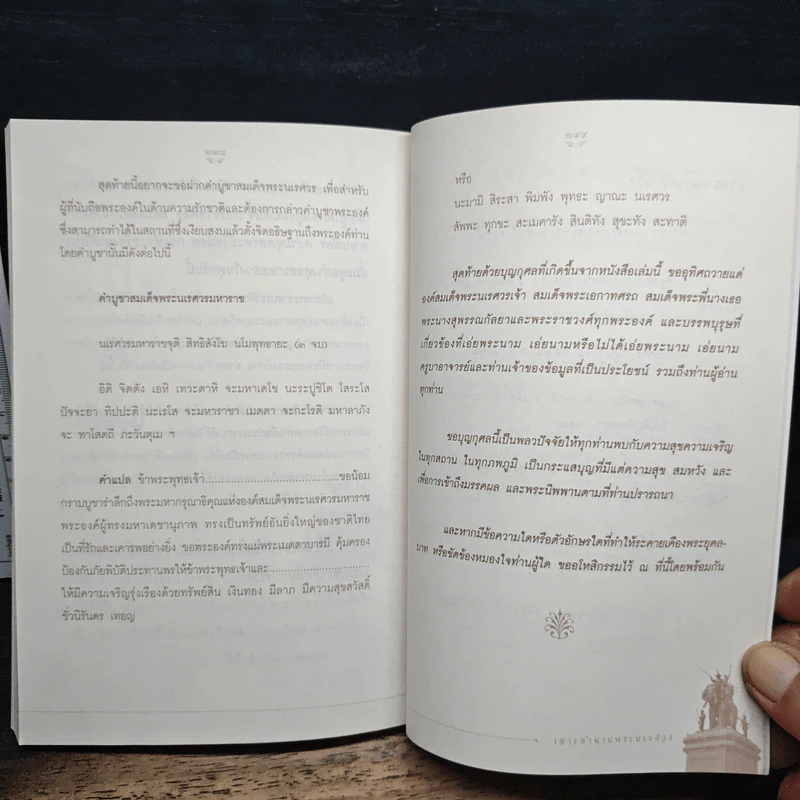 ๒๙๘
สุดท้ายนี้อยากจะขอฝากคำบูชาสมเด็จพระนเรศวร เพื่อสำหรับ
ผู้ที่นับถือพระองค์ในด้านความรักชาติและต้องการกล่าวคำบูชาพระองค์
ซึ่งสามารถทำได้ในสถานที่ซึ่งเงียบสงบแล้วตั้งจิตอธิษฐานถึงพระองค์ท่าน
โดยคำบูชานั้นมีดังต่อไปนี้
คำบูชาสมเด็จพระนเรศวรมหาราช
นเรศวรมหาราชจุติ สิทธิสังโฆ นโมพุทธายะ (๓ จบ)
อิติ จิตตัง เอหิ เทวะตาหิ จะมหาเตโช นะระปูชิโต โสระโส
ปัจจะยา ทิปปะติ นะเรโส จะมหาราชา เมตตา จะกะโรติ มหาลาภัง
จะ ทาโสตถี ภะวันตุเม ฯ
คำแปล ข้าพระพุทธเจ้า....................................ขอน้อม
กราบบูชารำลึกถึงพระมหากรุณาธิคุณแห่งองค์สมเด็จพระนเรศวรมหาราช
พระองค์ผู้ทรงมหาเดชานุภาพ ทรงเป็นทรัพย์อันยิ่งใหญ่ของชาติไทย
เป็นที่รักและเคารพอย่างยิ่ง ขอพระองค์ทรงแผ่พระเมตตาบารมี คุ้มครอง
ป้องกันภัยพิบัติประทานพรให้ข้าพระพุทธเจ้าและ..............................
ให้มีความเจริญรุ่งเรืองด้วยทรัพย์สิน เงินทอง มีลาภ มีความสุขสวัสดิ์
ชั่วนิรันดร เทอญ
๒๙๙
หรือ
นะมามิ สิระสา พิมพัง พุทธะ ญาณะ นเรศวร
สัพพะ ทุกขะ สะเมคารัง สินติทัง สุขะทัง สะทาติ
สุดท้ายด้วยบุญกุศลที่เกิดขึ้นจากหนังสือเล่มนี้ ขออุทิศถวายแด่
องค์สมเด็จพระนเรศวรเจ้า สมเด็จพระเอกาทศรถ สมเด็จพระพี่นางเธอ
พระนางสุพรรณกัลยาและพระราชวงศ์ทุกพระองค์ และบรรพบุรุษที่
เกี่ยวข้องที่เอ่ยพระนาม เอ่ยนามหรือไม่ได้เอ่ยพระนาม เอ่ยนาม
ครูบาอาจารย์และท่านเจ้าของข้อมูลที่เป็นประโยชน์ รวมถึงท่านผู้อ่าน
ทุกท่าน
ขอบุญกุศลนี้เป็นพลวปัจจัยให้ทุกท่านพบกับความสุขความเจริญ
ในทุกสถาน ในทุกภพภูมิ เป็นกระแสบุญที่มีแต่ความสุข สมหวัง และ
เพื่อการเข้าถึงมรรคผล และพระนิพพานตามที่ท่านปรารถนา
และหากมีข้อความใดหรือตัวอักษรใดที่ทำให้ระคายเคืองพระยุคล-
บาท หรือขัดข้องหมองใจท่านผู้ใด ขออโหสิกรรมไว้ ณ ที่นี้โดยพร้อมกัน
เจาะตำนานพระนเรศวร